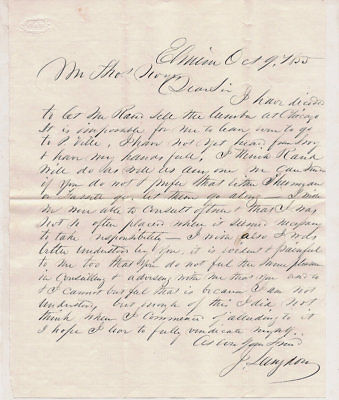 Elmira Oct 9, 1855
Mr Thos
Dear Sir
I have decided
to let Mr Rand sell the lumber at Chicago
It is impossible for me to leave even to go
to I have not yet heard from
& have my hands full, I think Rand
will do as well as any one we can
if you do not prefer that either Sherman
or go, let them go along — I wish
we were able to consult oftener that I was
not so often placed where it seems necessary
to take responsibility — I wish also I was
better understood by you, it is painful
to me too that you do not feel the same pleasure
in consulting & advising with me that you used to
& I cannot but feel that is because I am not
understood, but enough of this I did not
think when I commenced of alluding to it
I hope I live to fully vindicate myself.
As ever your friend
J. Langdon